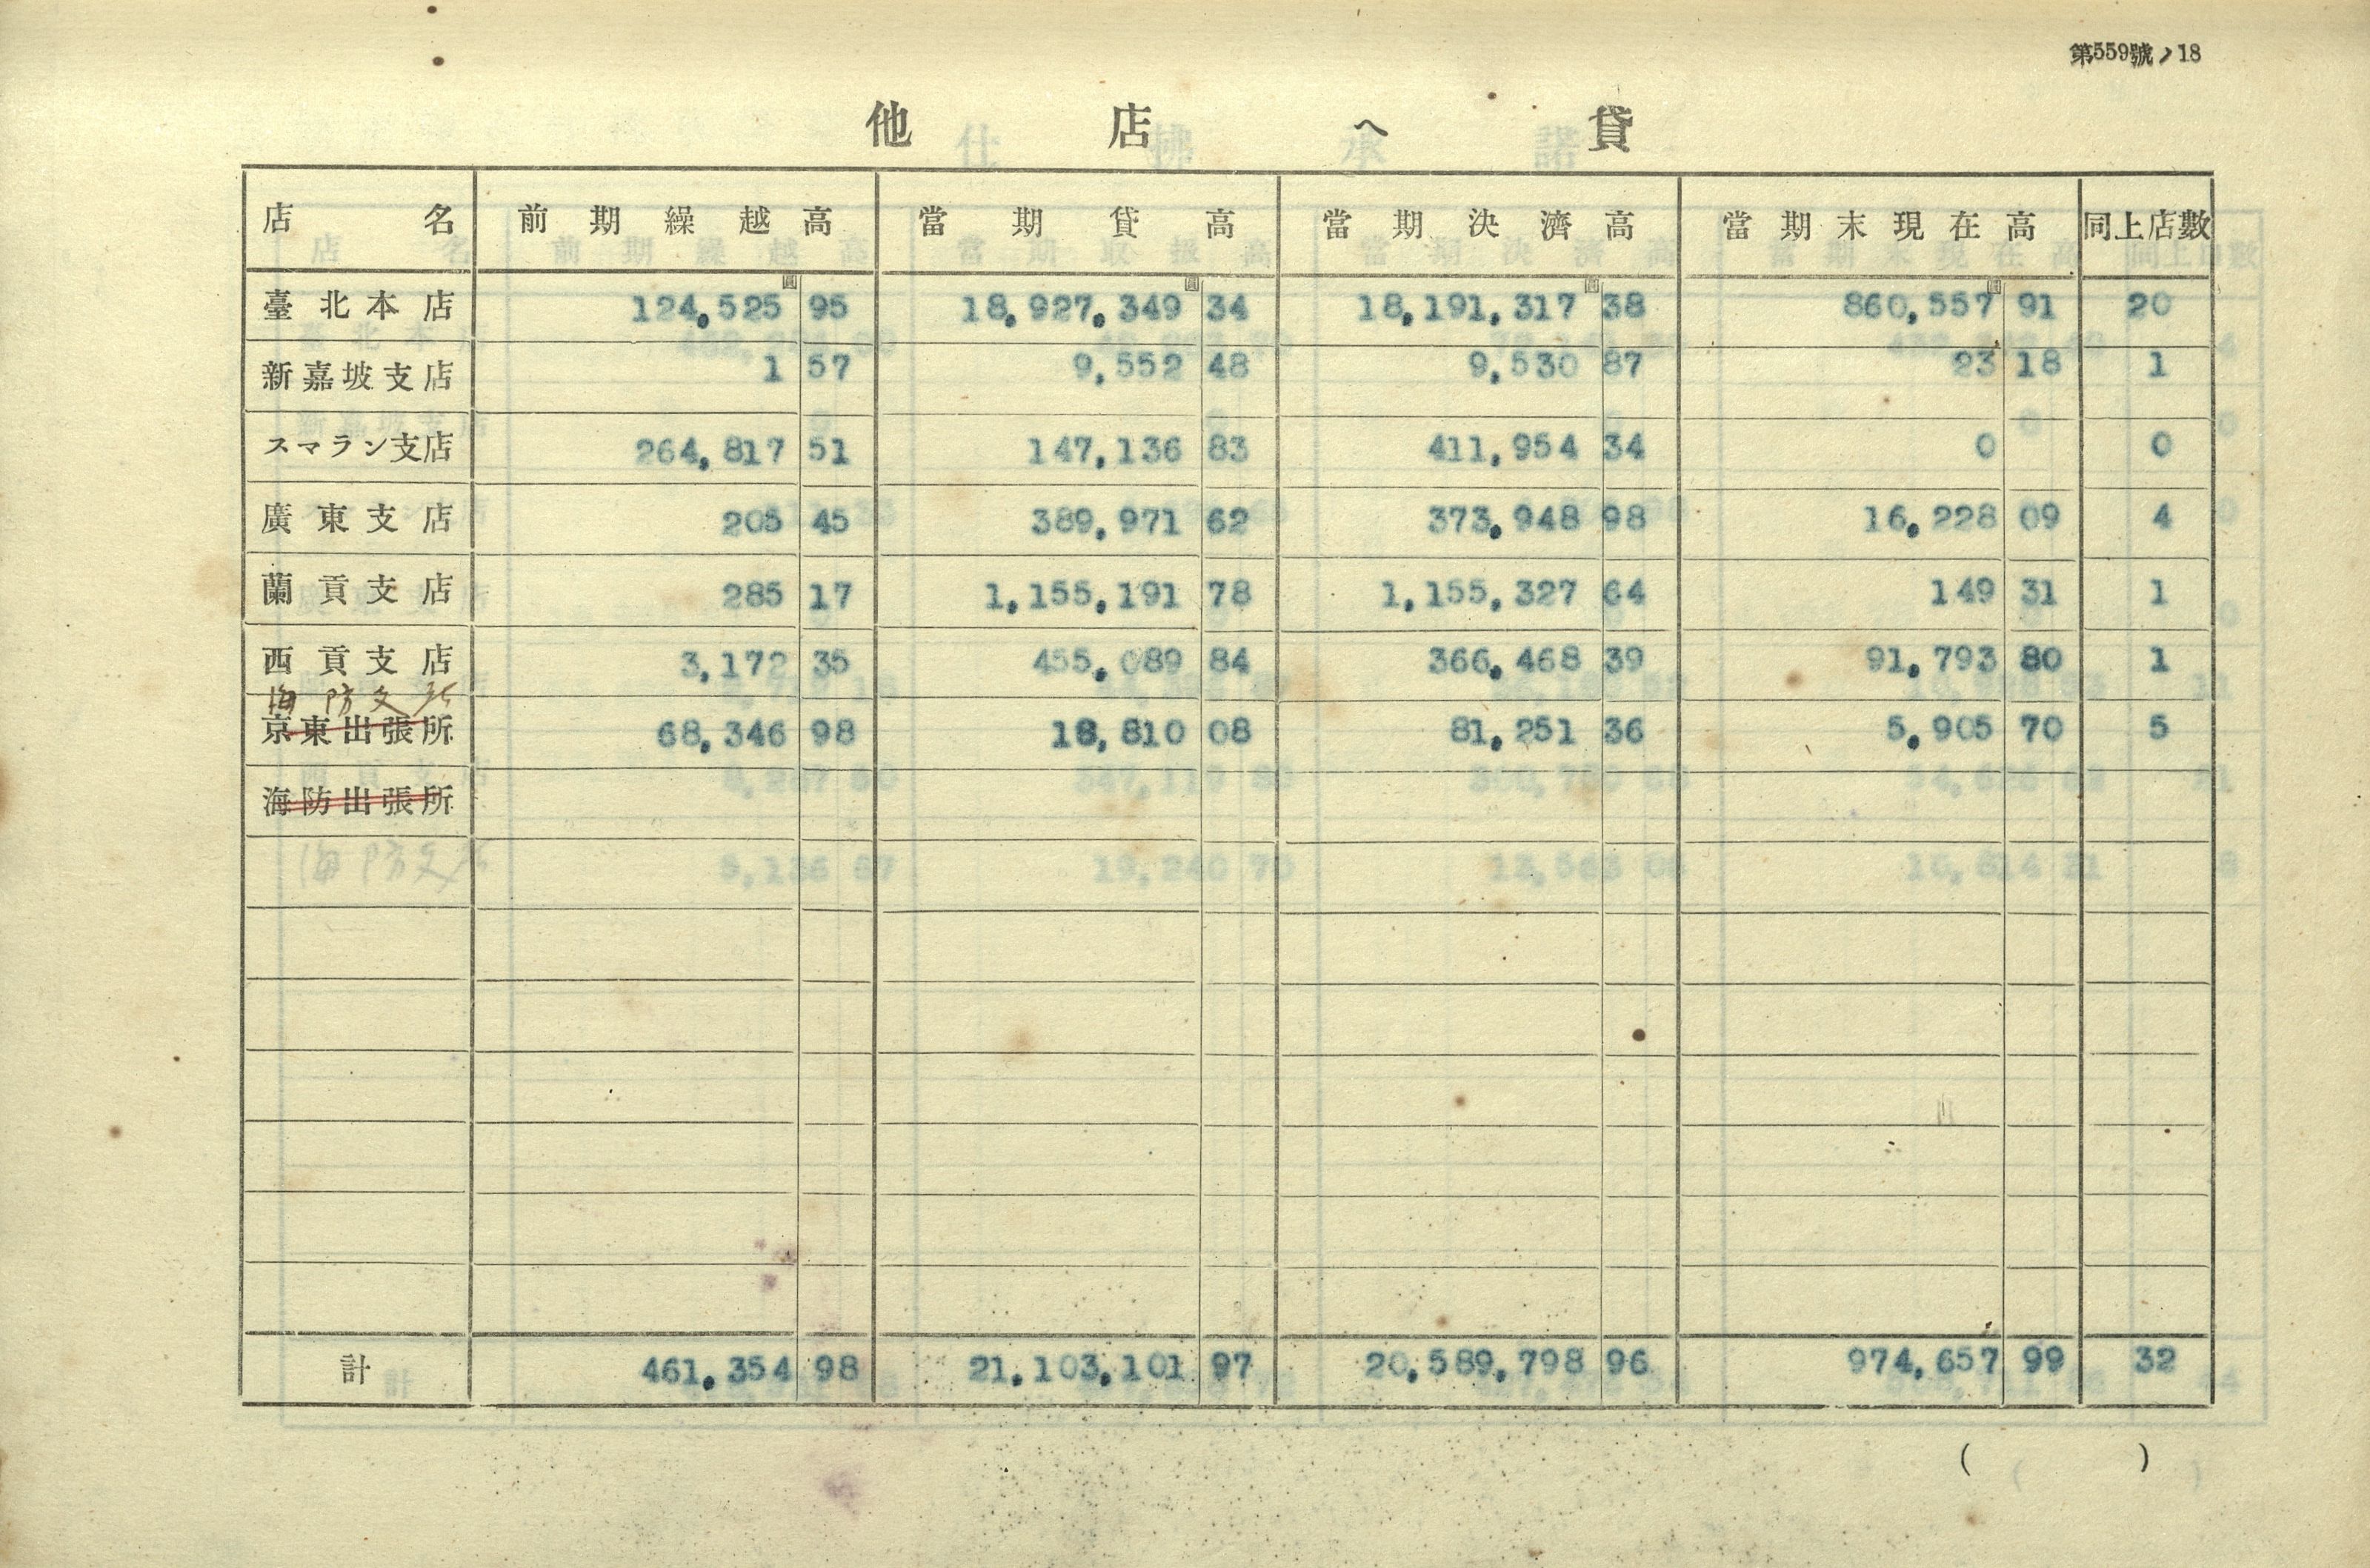 第559號ノ18
他店へ貸
店名 前期繰越高 當期貸高 當期決濟高 當期末現在高 同上店數
圓 圓 圓 圓
臺北本店 124,525 95 18,927,349 34 18,191,317 38 860,557 91 20
新嘉坡支店 1 57 9,552 48 9,530 87 23 18 1
スマラン支店 264,817 51 147,136 83 411,954 34 0 0
廣東支店 205 45 389,971 62 373,948 98 16,228 09 4
蘭貢支店 285 17 1,155,191 78 1,155,327 64 149 31 1
西貢支店 3,172 35 455,089 84 366,468 39 91,793 80 1
海防支店
京東出張所 68,346 98 18,810 08 81,251 36 5,905 70 5
海防出張所
計 461,354 98 21,103,101 97 20,589,798 96 974,657 99 32
( )